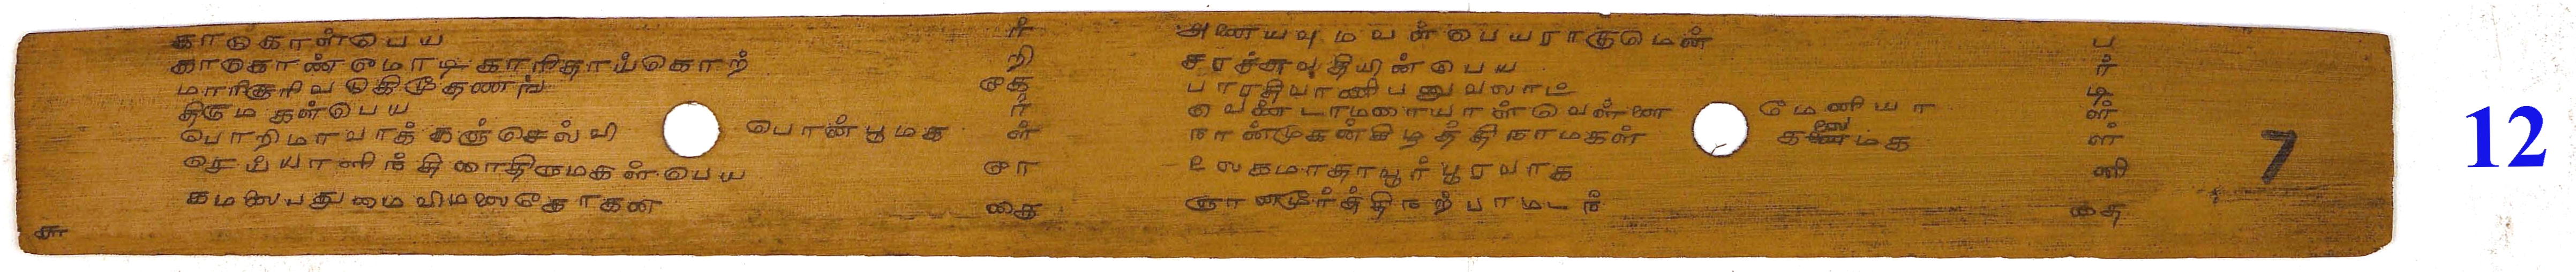 காடுகாள்பெய ர் அணையவுமவள்பெயராகுமென் ப
காடுகாண்மோடி காரிதாய்கொற் றி சரச்சுவதியின்பெய ர்
மாரி பாரதிவாணிபனுவலாட் டி
திருமகள்பெய ர் வெண்டாமரையாள்வெள்ளை மேனியா ள்
பொறிமாவாக்கஞ்செல்வி பொன்பூமக ள் நான்முகன்கிழத்திநாமகள் கலைமக ள்
செய்யாளிந்திரைதிருமகள்பெய ரே உலகமாதாவூர்பூரவாக னி
கமலைபதுமைவிமலை கை ஞானமூர்த்திநற்பாமடந் தை
7
12